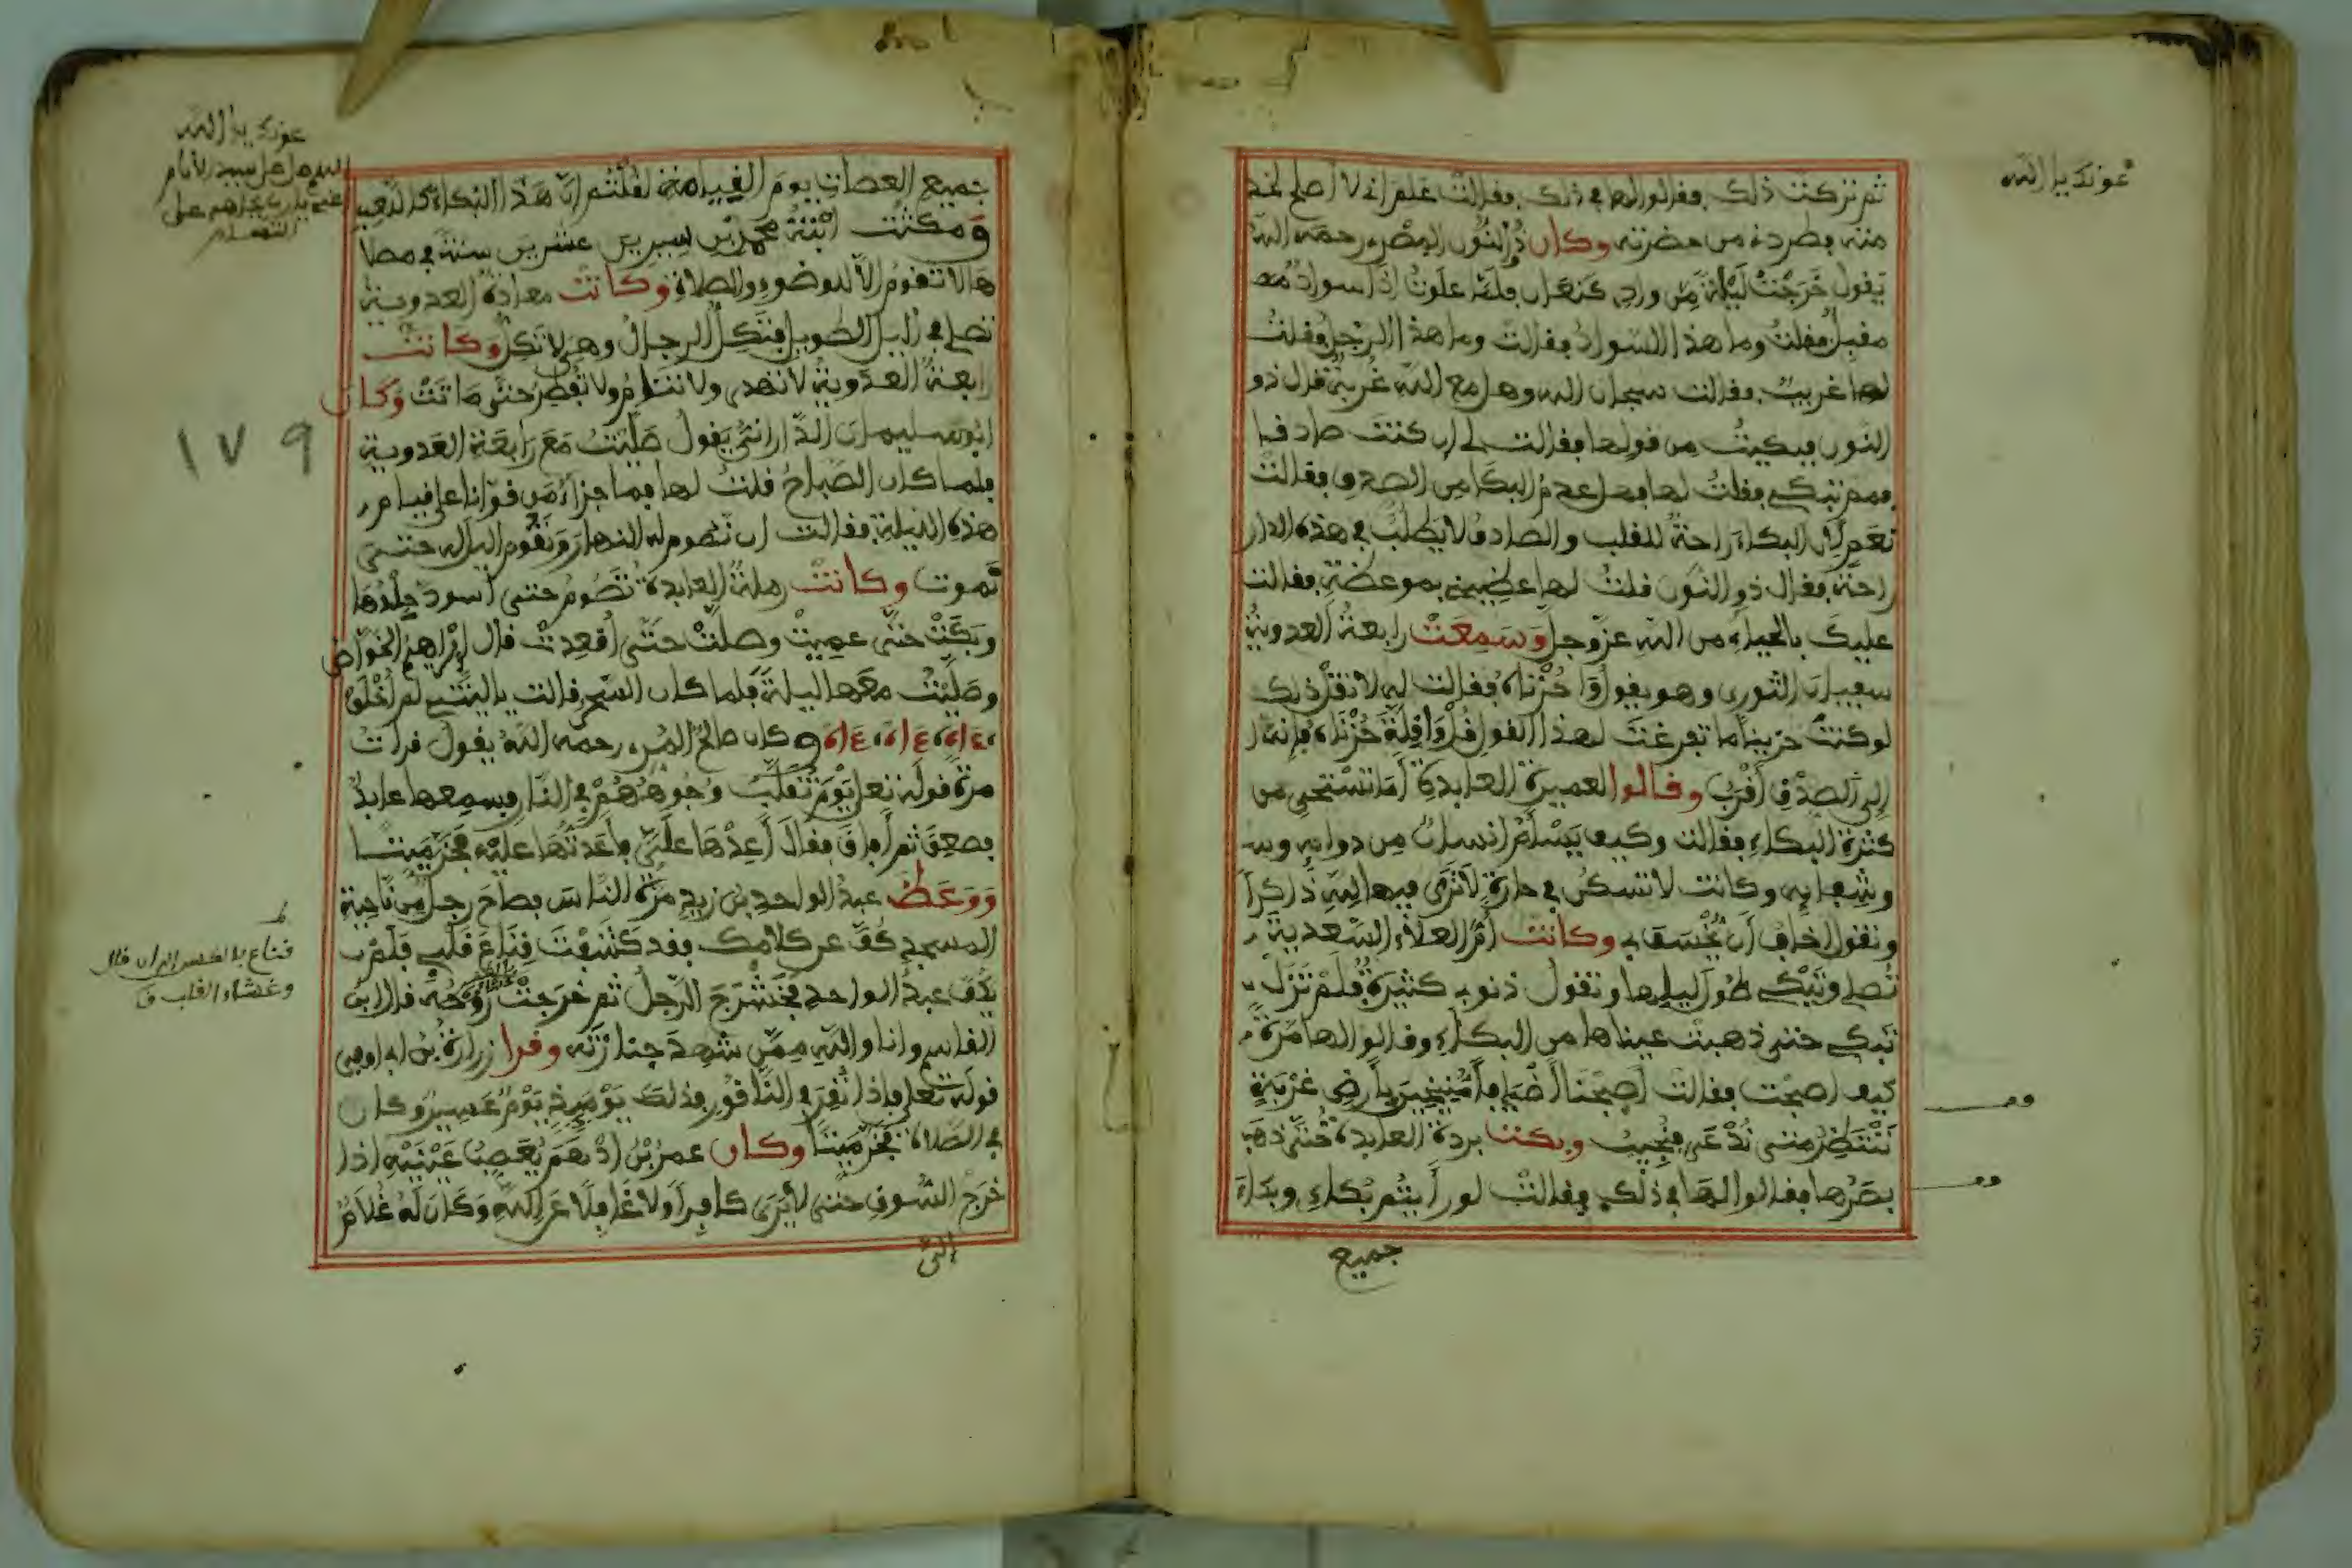 عونك يا الله
ثم تركت ذلك فقالوا لها في ذلك فقالت علم اني لا اصلح لخد
منه بطرده من حضرته وكان ذو النون المصري رحمه الله
يقول خرجت ليلة من وادي كنعان فلما علوت اذا سواد
مقبل فقلت وما هذا السواد فقالت وما هذا الرجل فقلت
لها غريب فقالت سبحان الله وهل مع الله غربة قال ذو
النون فبكيت من قولها فقالت لي ان كنت صادقا
فمم تبكي فقلت لها فهل عدم البكا من الصدق فقالت
نعم لان البكاء راحة للقلب والصادق لا يطلب في هذه الدار
راحة فقال ذو النون فلت لها عظيني بموعظة فقالت
عليك بالحياء من الله عز وجل وسمعت رابعة العدوية
سفيان الثوري وهو يقول وا حزناه فقالت له لا تقل ذلك
لو كنت حزينا ما تفرغت لهذا القول قل وا قلة حزناه فإنه
إلى الصدق أقرب وقالوا لعميرة العابدة أما تستحي من
كثرة البكاء فقالت وكيف يسلم إنسان من دوايه و
وشفايه وكانت لا تسكن في حارة لا ترى فيها لله ذاكرا
وتقول اخاف أن يخسف بي وكانت أم العلاء السعدية
تصلي وتبكي طول ليلها وتقول ذنوبي كثيرة فلم تزل
تبكي حتى ذهبت عيناها من البكاء وقالوا لها مرة
كيف اصبحت فقالت اصبحنا أضيافا منيخين بأرض غربة
ننتظر متى ندعى فنجيب وبكت بردة العابدة حتى ذهب
بصرها فقالوا لها في ذلك فقالت لو رأيتم بكاء وبداء
جميع
عونك يا الله
اللهم صل على سيد الأنام
جميع العصات يوم القيامة لقلتم ان هذا البكاء كاللعب
ومكثت ابنة محمد بن سيرين عشرين سنة في مصلا
ها لا تقوم الا لوضوء والصلاة وكانت معاذة العدوية
تصلي في الليل الطويل فتكل الرجال وهي لا تكل وكانت
رابعة العدوية لا تهدى ولا تنام ولا تفطر حتى ماتت وكان
ابو سليمان الداراني يقول صليت مع رابعة العدوية
فلما كان الصباح قلت لها فما جزاء من قوانا على قيام
هذه الليلة فقالت ان نصوم له النهار ونقوم الليل له حتى
نموت وكانت رملة العابدة تصوم حتى أسود جلدها
وبكت حتى عميت وصلت حتى أقعدت قال إبراهيم الخواص
وصليت معها ليلة فلما كان السحر قالت يا ليتني لم أخلق
ءاه ءاه ءاه وكان صالح المري رحمه الله يقول قرات
مرة قوله تعلى يوم تقلب وجوههم في النار فسمعها عابد
فصعق ثم أفاق فقال أعدها علي فأعدتها عليه فخر ميتا
ووعظ عبد الواحد بن زيد مرة الناس فصاح رجل من ناحية
المسجد كف عن كلامك فقد كشفت قناع قلبي فلم ي
كف عبد الواحد فحشرج الرجل ثم خرجت روحه قال ابن
القاسم وانا والله ممن شهد جنازته وقرا زرارة بن ابي اوفى
قوله تعلى فإذا نقر في الناقور فذلك يومئذ يوم عسير وكان
في الصلاة فخر ميتا وكان عمر بن ادهم يعصب عينيه اذا
خرج السوق حتى لا يرى كافرا ولا غافلا عن الله وكان له غلام
الى
١٧٩
قناع
وغشاء القلب